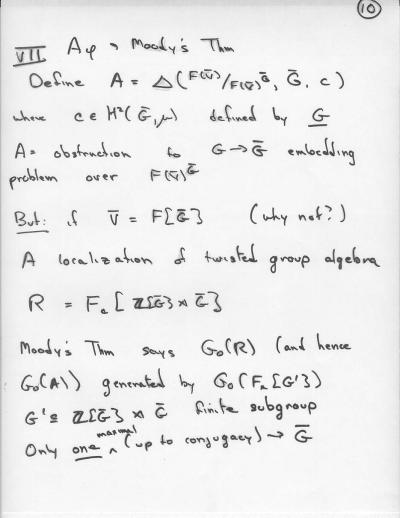 10
VII Aφ & Moody's Thm
Define A = Δ(F(V̄)/F(V̄)^Ḡ, Ḡ, c)
where c ∈ H²(Ḡ, μ) defined by G
A = obstruction to G → Ḡ embedding
problem over F(V̄)^Ḡ
But: if V̄ = F[Ḡ] (why not?)
A localization of twisted group algebra
R = Fc[ℤ[Ḡ] ⋊ Ḡ]
Moody's Thm says G₀(R) (and hence
G₀(A)) generated by G₀(Fc[G'])
G' ⊆ ℤ[Ḡ] ⋊ Ḡ finite subgroup
Only one maximal (up to conjugacy) → Ḡ